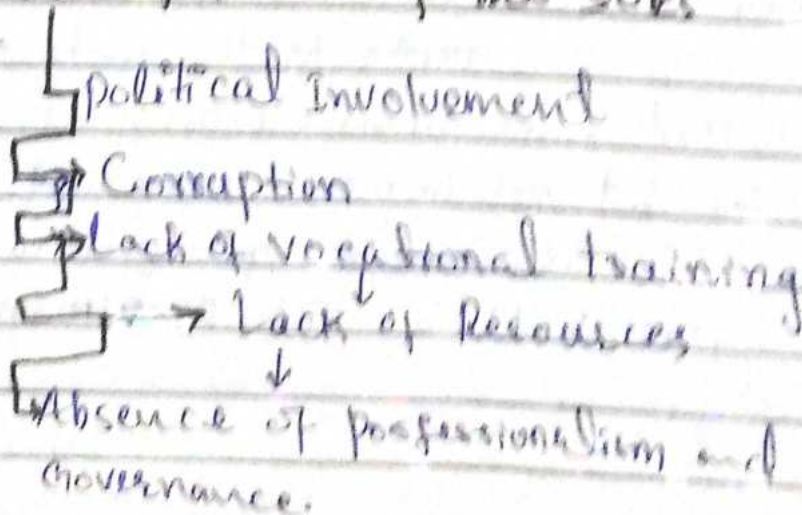 Political Involvement
Corruption
Lack of vocational training
Lack of Resources
Absence of professionalism and
Governance.